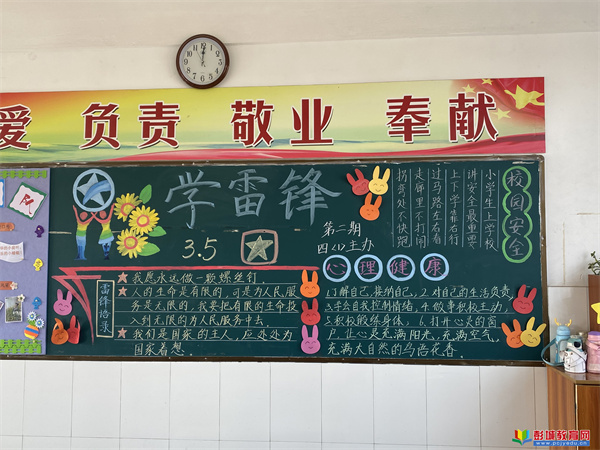 爱 负责 敬业 奉献
学雷锋
3.5
第二期
四(1)主办
校园安全
小学生上学校
讲安全最重要
上下学靠右行
过马路左右看
走廊里不打闹
拐弯处不快跑
雷锋语录
★我愿永远做一颗螺丝钉
★人的生命是有限的,可是为人民服
务是无限的,我要把有限的生命投
入到无限的为人民服务中去
★我们是国家的主人,应处处为
国家着想.
心理健康
1.了解自己,接纳自己,2.对自己的生活负责
3.学会自我控制情绪,4.做事积极主动,
5.积极锻练身体,6.打开心灵的窗
户,让心灵充满阳光,充满空气,
充满大自然的鸟语花香.
彭城教育网
www.pcjyedu.cn